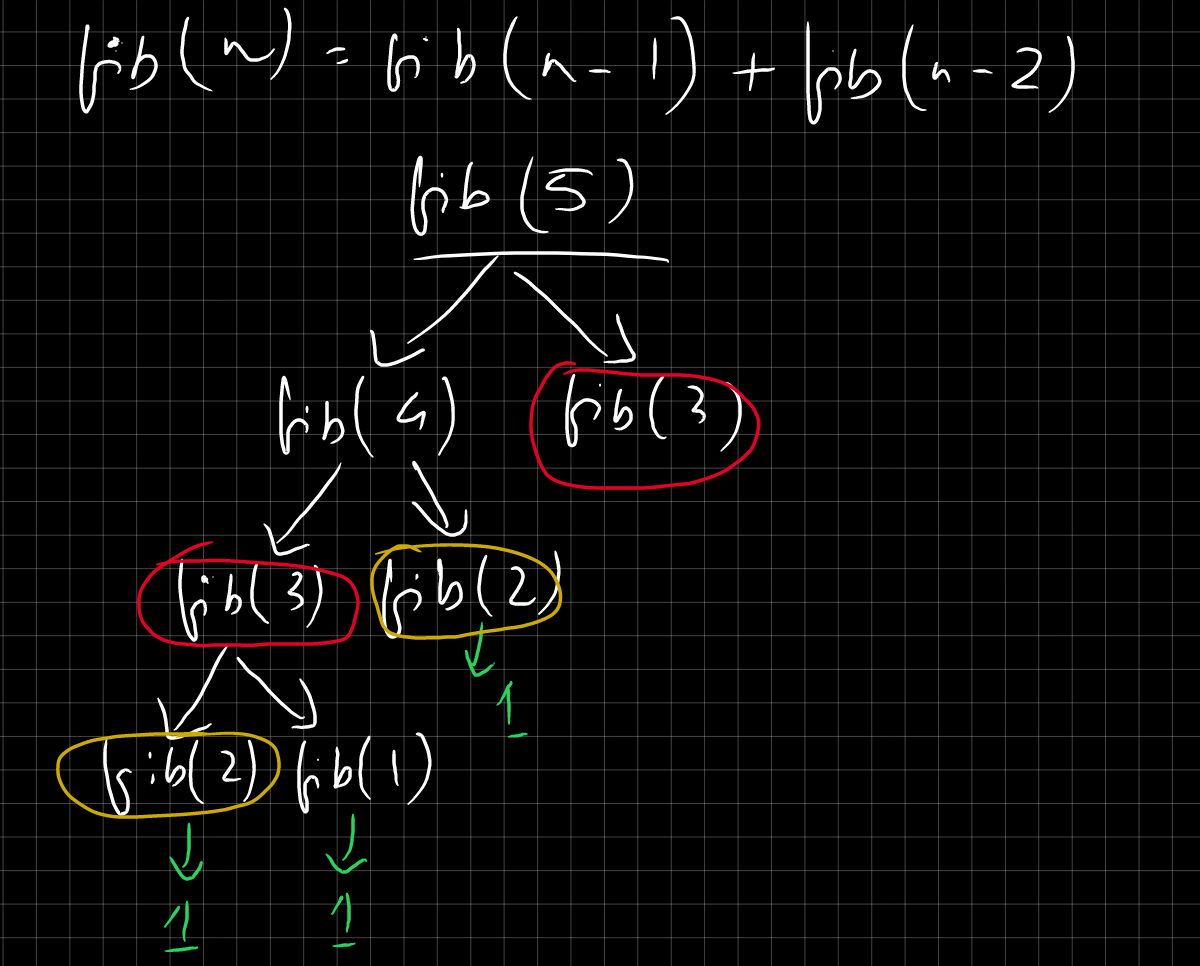 fib(n) = fib(n-1) + fib(n-2)
fib(5)
fib(4) fib(3)
fib(3) fib(2)
1
fib(2) fib(1)
1 1